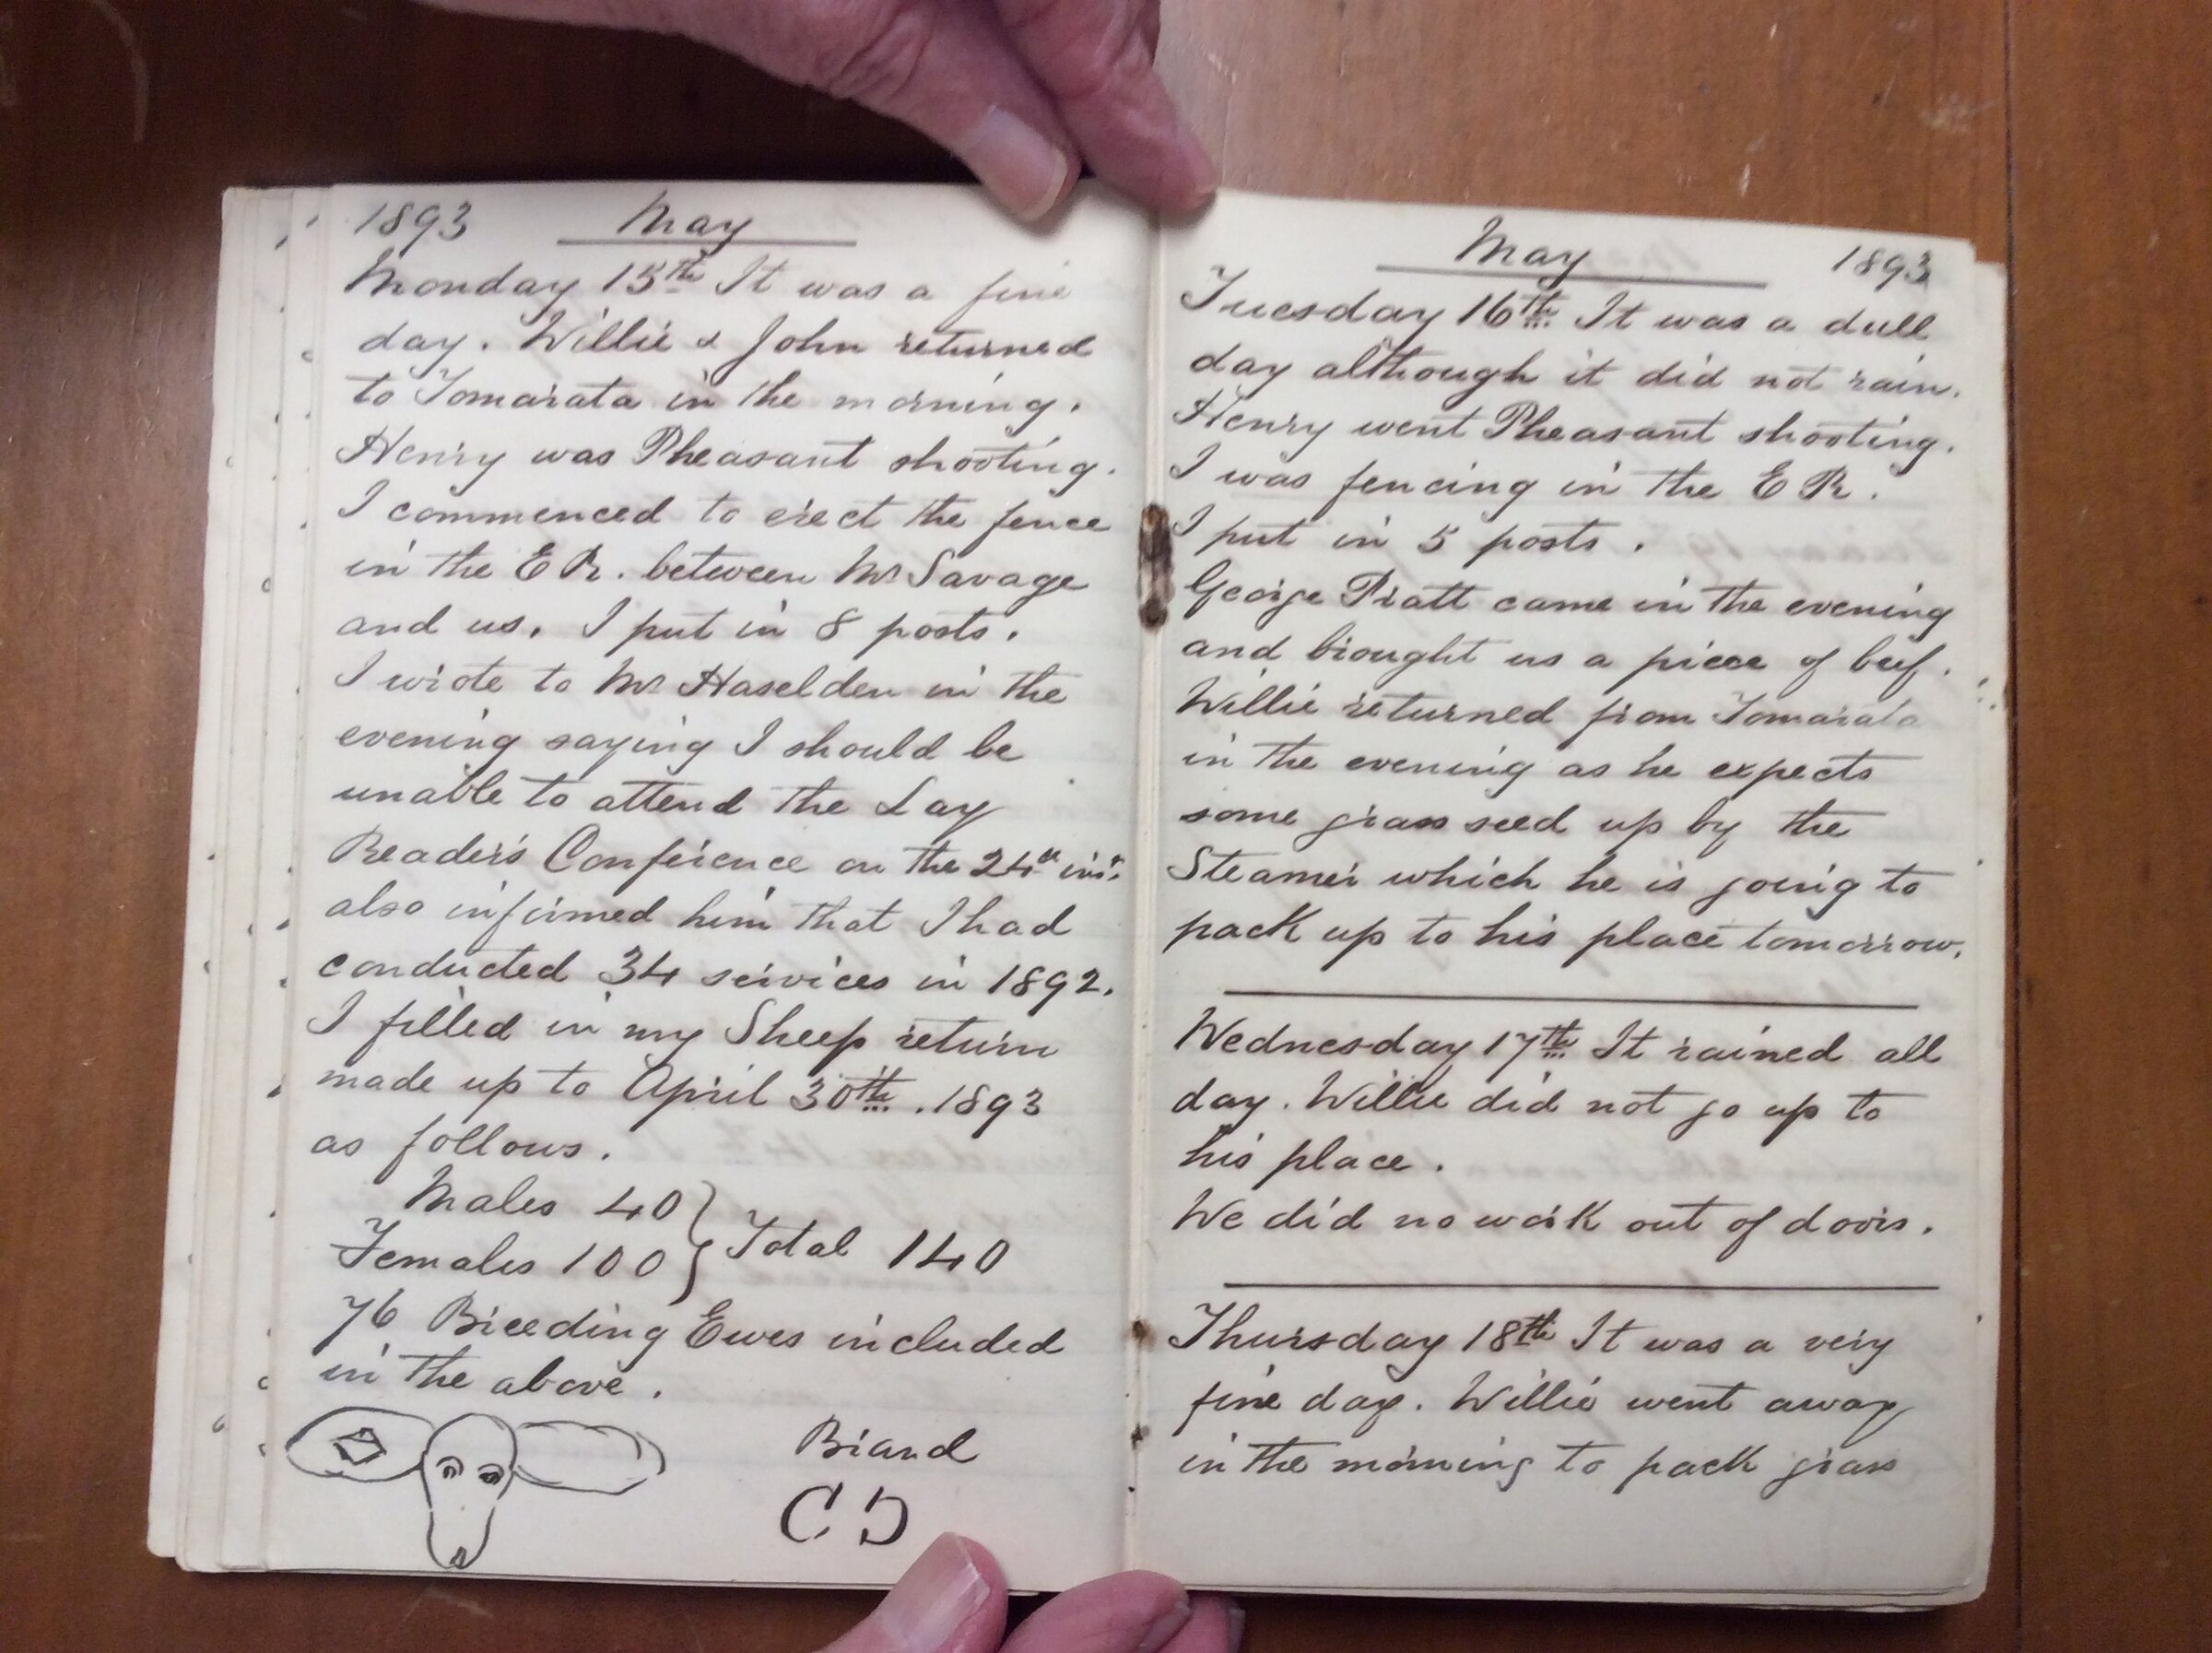 1893 May
Monday 15th It was a fine
day. Willie & John returned
to Tomarata in the morning.
Henry was Pheasant shooting.
I commenced to erect the fence
in the E R. between Mr Savage
and us. I put in 8 posts.
I wrote to Mr Haselden in the
evening saying I should be
unable to attend the Lay
Reader's Conference on the 24th inst.
also informed him that I had
conducted 34 services in 1892.
I filled in my Sheep return
made up to April 30th. 1893
as follows.
Males 40 } Total 140
Females 100
76 Breeding Ewes included
in the above.
Brand
May 1893
Tuesday 16th It was a dull
day although it did not rain.
Henry went Pheasant shooting.
I was fencing in the E R.
I put in 5 posts.
George Pratt came in the evening
and brought us a piece of beef.
Willie returned from Tomarata
in the evening as he expects
some grass seed up by the
Steamer which he is going to
pack up to his place tomorrow.
Wednesday 17th It rained all
day. Willie did not go up to
his place.
We did no work out of doors.
Thursday 18th It was a very
fine day. Willie went away
in the morning to pack grass